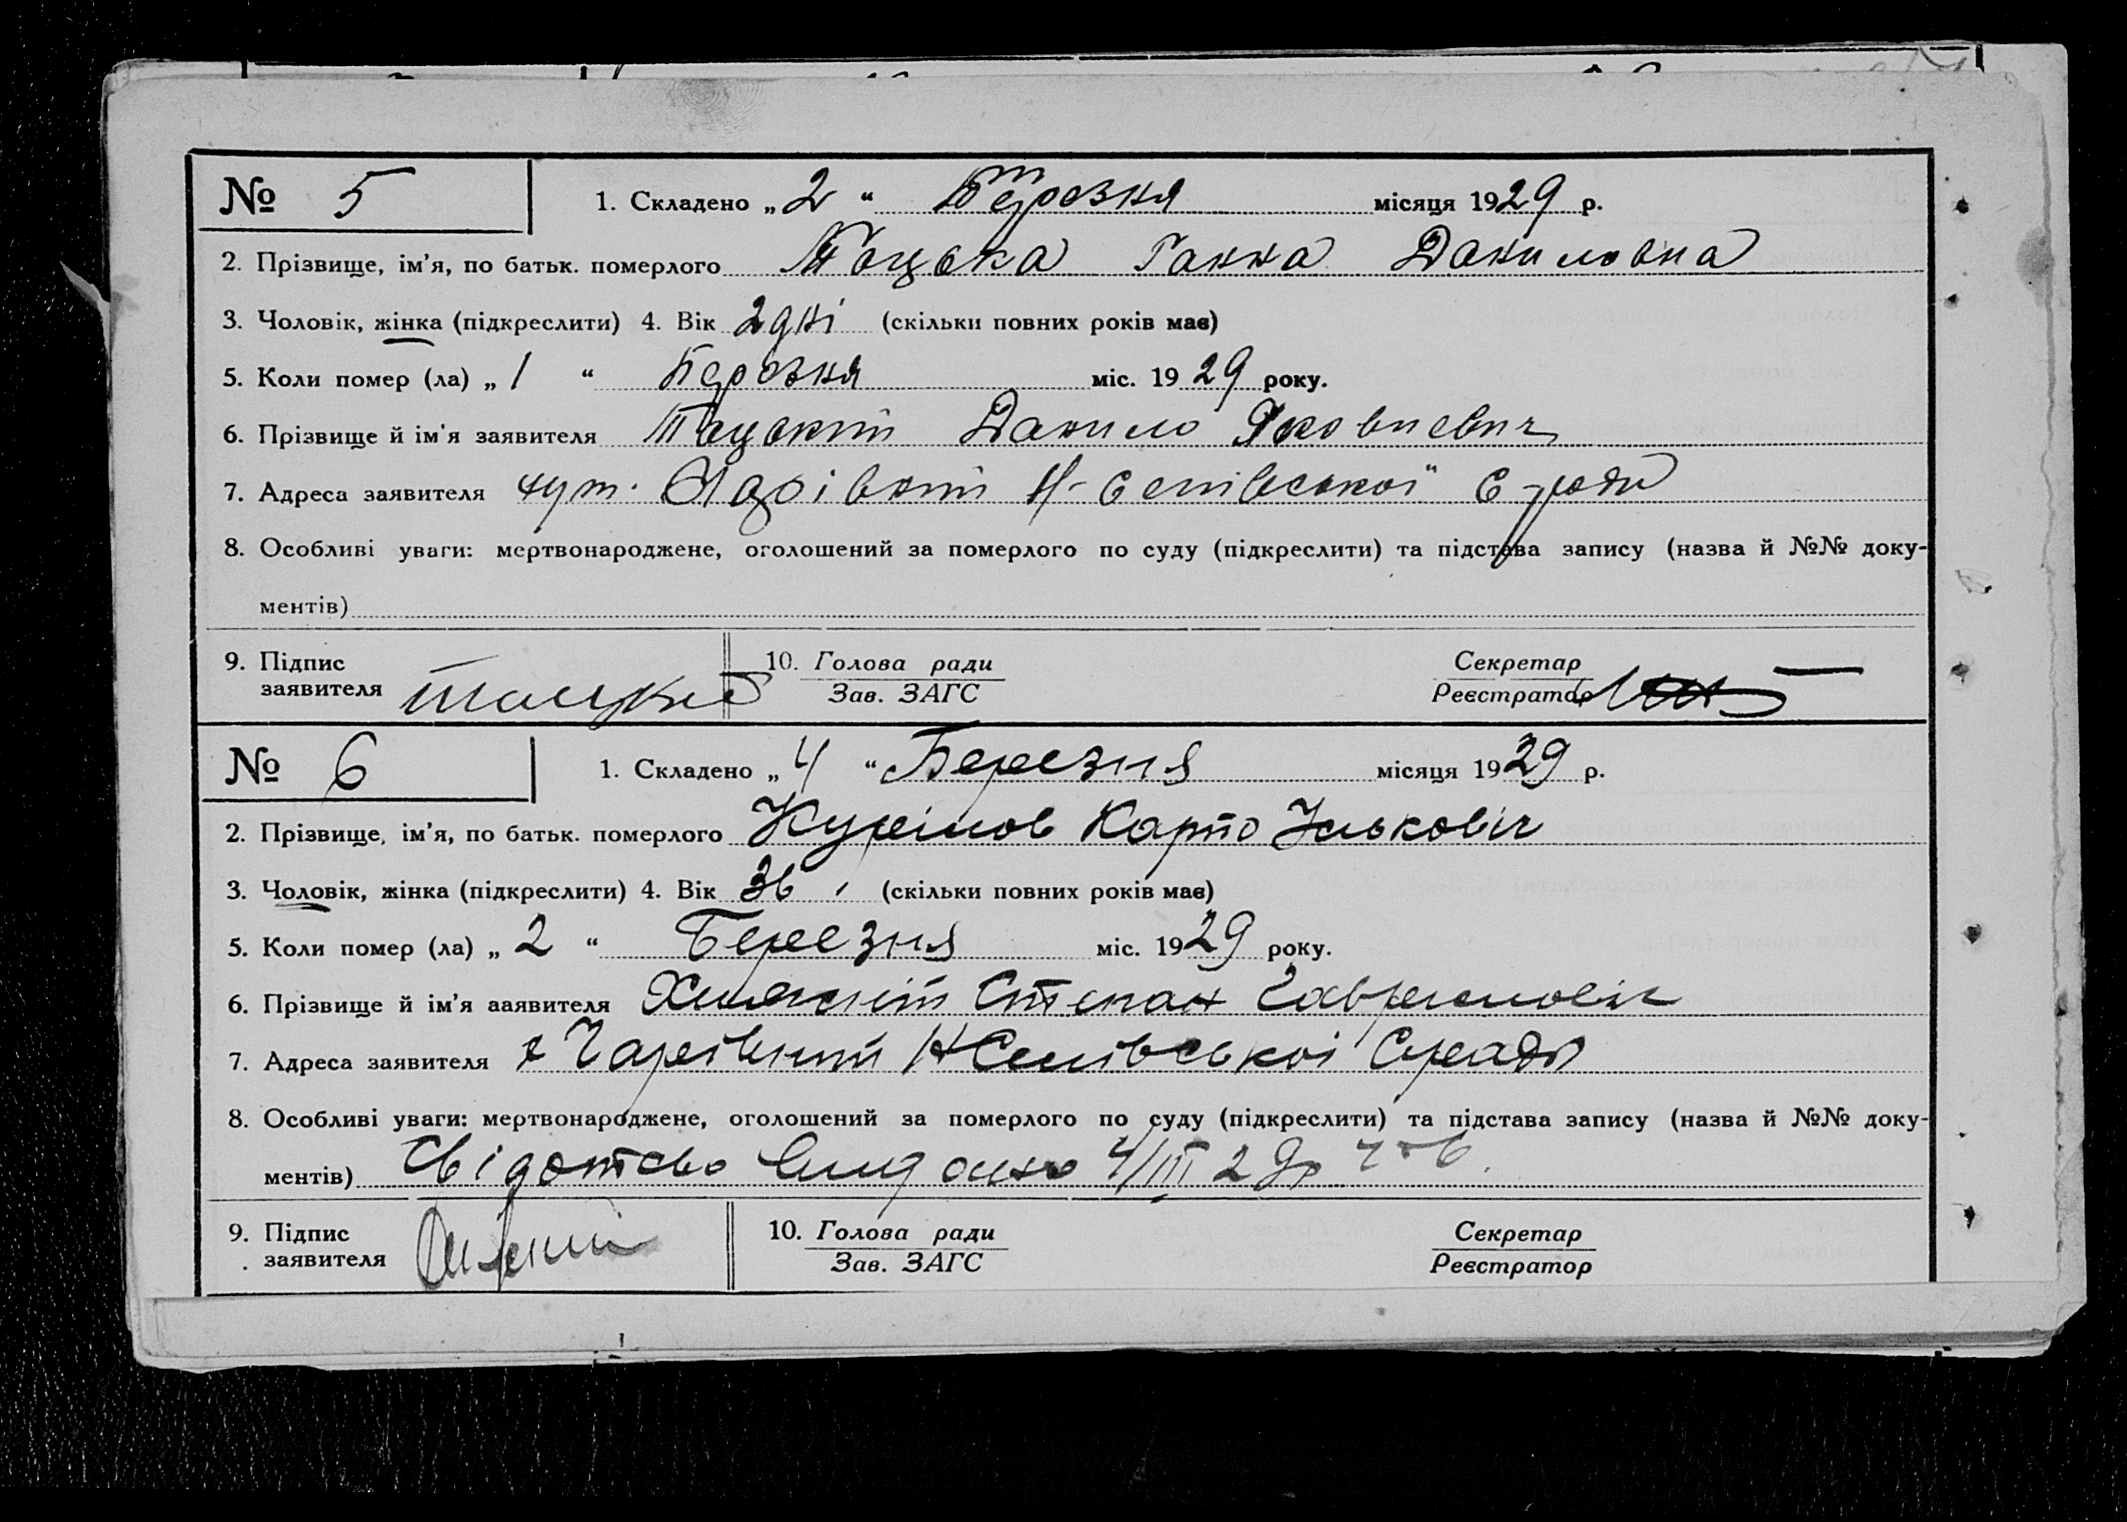 № 5 1. Складено „ 2 “ Березня місяця 1929 р.
2. Прізвище, ім'я, по батьк. померлого Тоцька Ганна Даниловна
3. Чоловік, жінка (підкреслити) 4. Вік 2 дні (скільки повних років має)
5. Коли помер (ла) „ 1 “ Березня міс. 19 29 року.
6. Прізвище й ім'я заявителя Тоцький Данило Яковлевич
7. Адреса заявителя хут. Н-Селівської С-ради
8. Особливі уваги: мертвонароджене, оголошений за померлого по суду (підкреслити) та підстава запису (назва й №№ доку-
ментів)
9. Підпис 10. Голова ради Секретар
заявителя Тоцький Зав. ЗАГС Реєстратор
№ 6 1. Складено „ 4 “ Березня місяця 1929 р.
2. Прізвище, ім'я, по батьк. померлого Карпо Ількович
3. Чоловік, жінка (підкреслити) 4. Вік 36 (скільки повних років має)
5. Коли помер (ла) „ 2 “ Березня міс. 1929 року.
6. Прізвище й ім'я ааявителя Степан
7. Адреса заявителя Н Селівської Сради
8. Особливі уваги: мертвонароджене, оголошений за померлого по суду (підкреслити) та підстава запису (назва й №№ доку-
ментів) Свідотство видано 4/III 29р
9. Підпис 10. Голова ради Секретар
заявителя Зав. ЗАГС Реєстратор